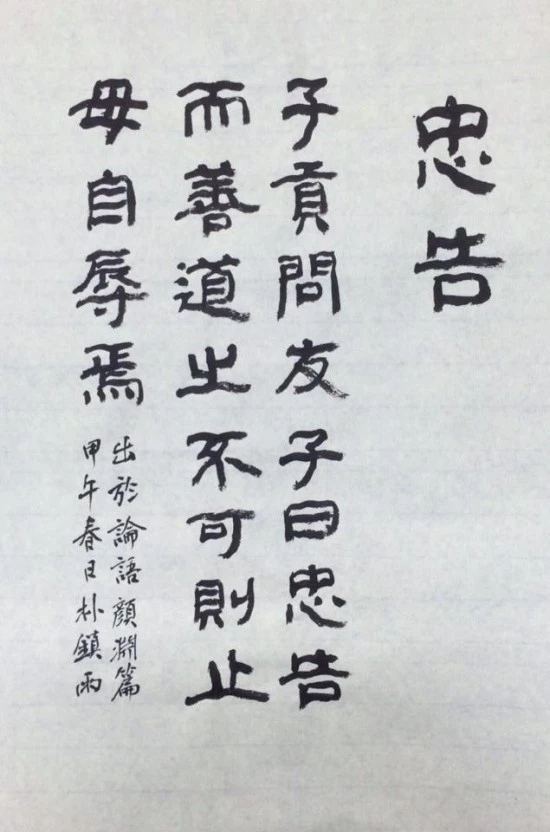 忠告
子貢問友子曰忠告
而善道之不可則止
毋自辱焉
出於論語顏淵篇
甲午春日朴鎮雨